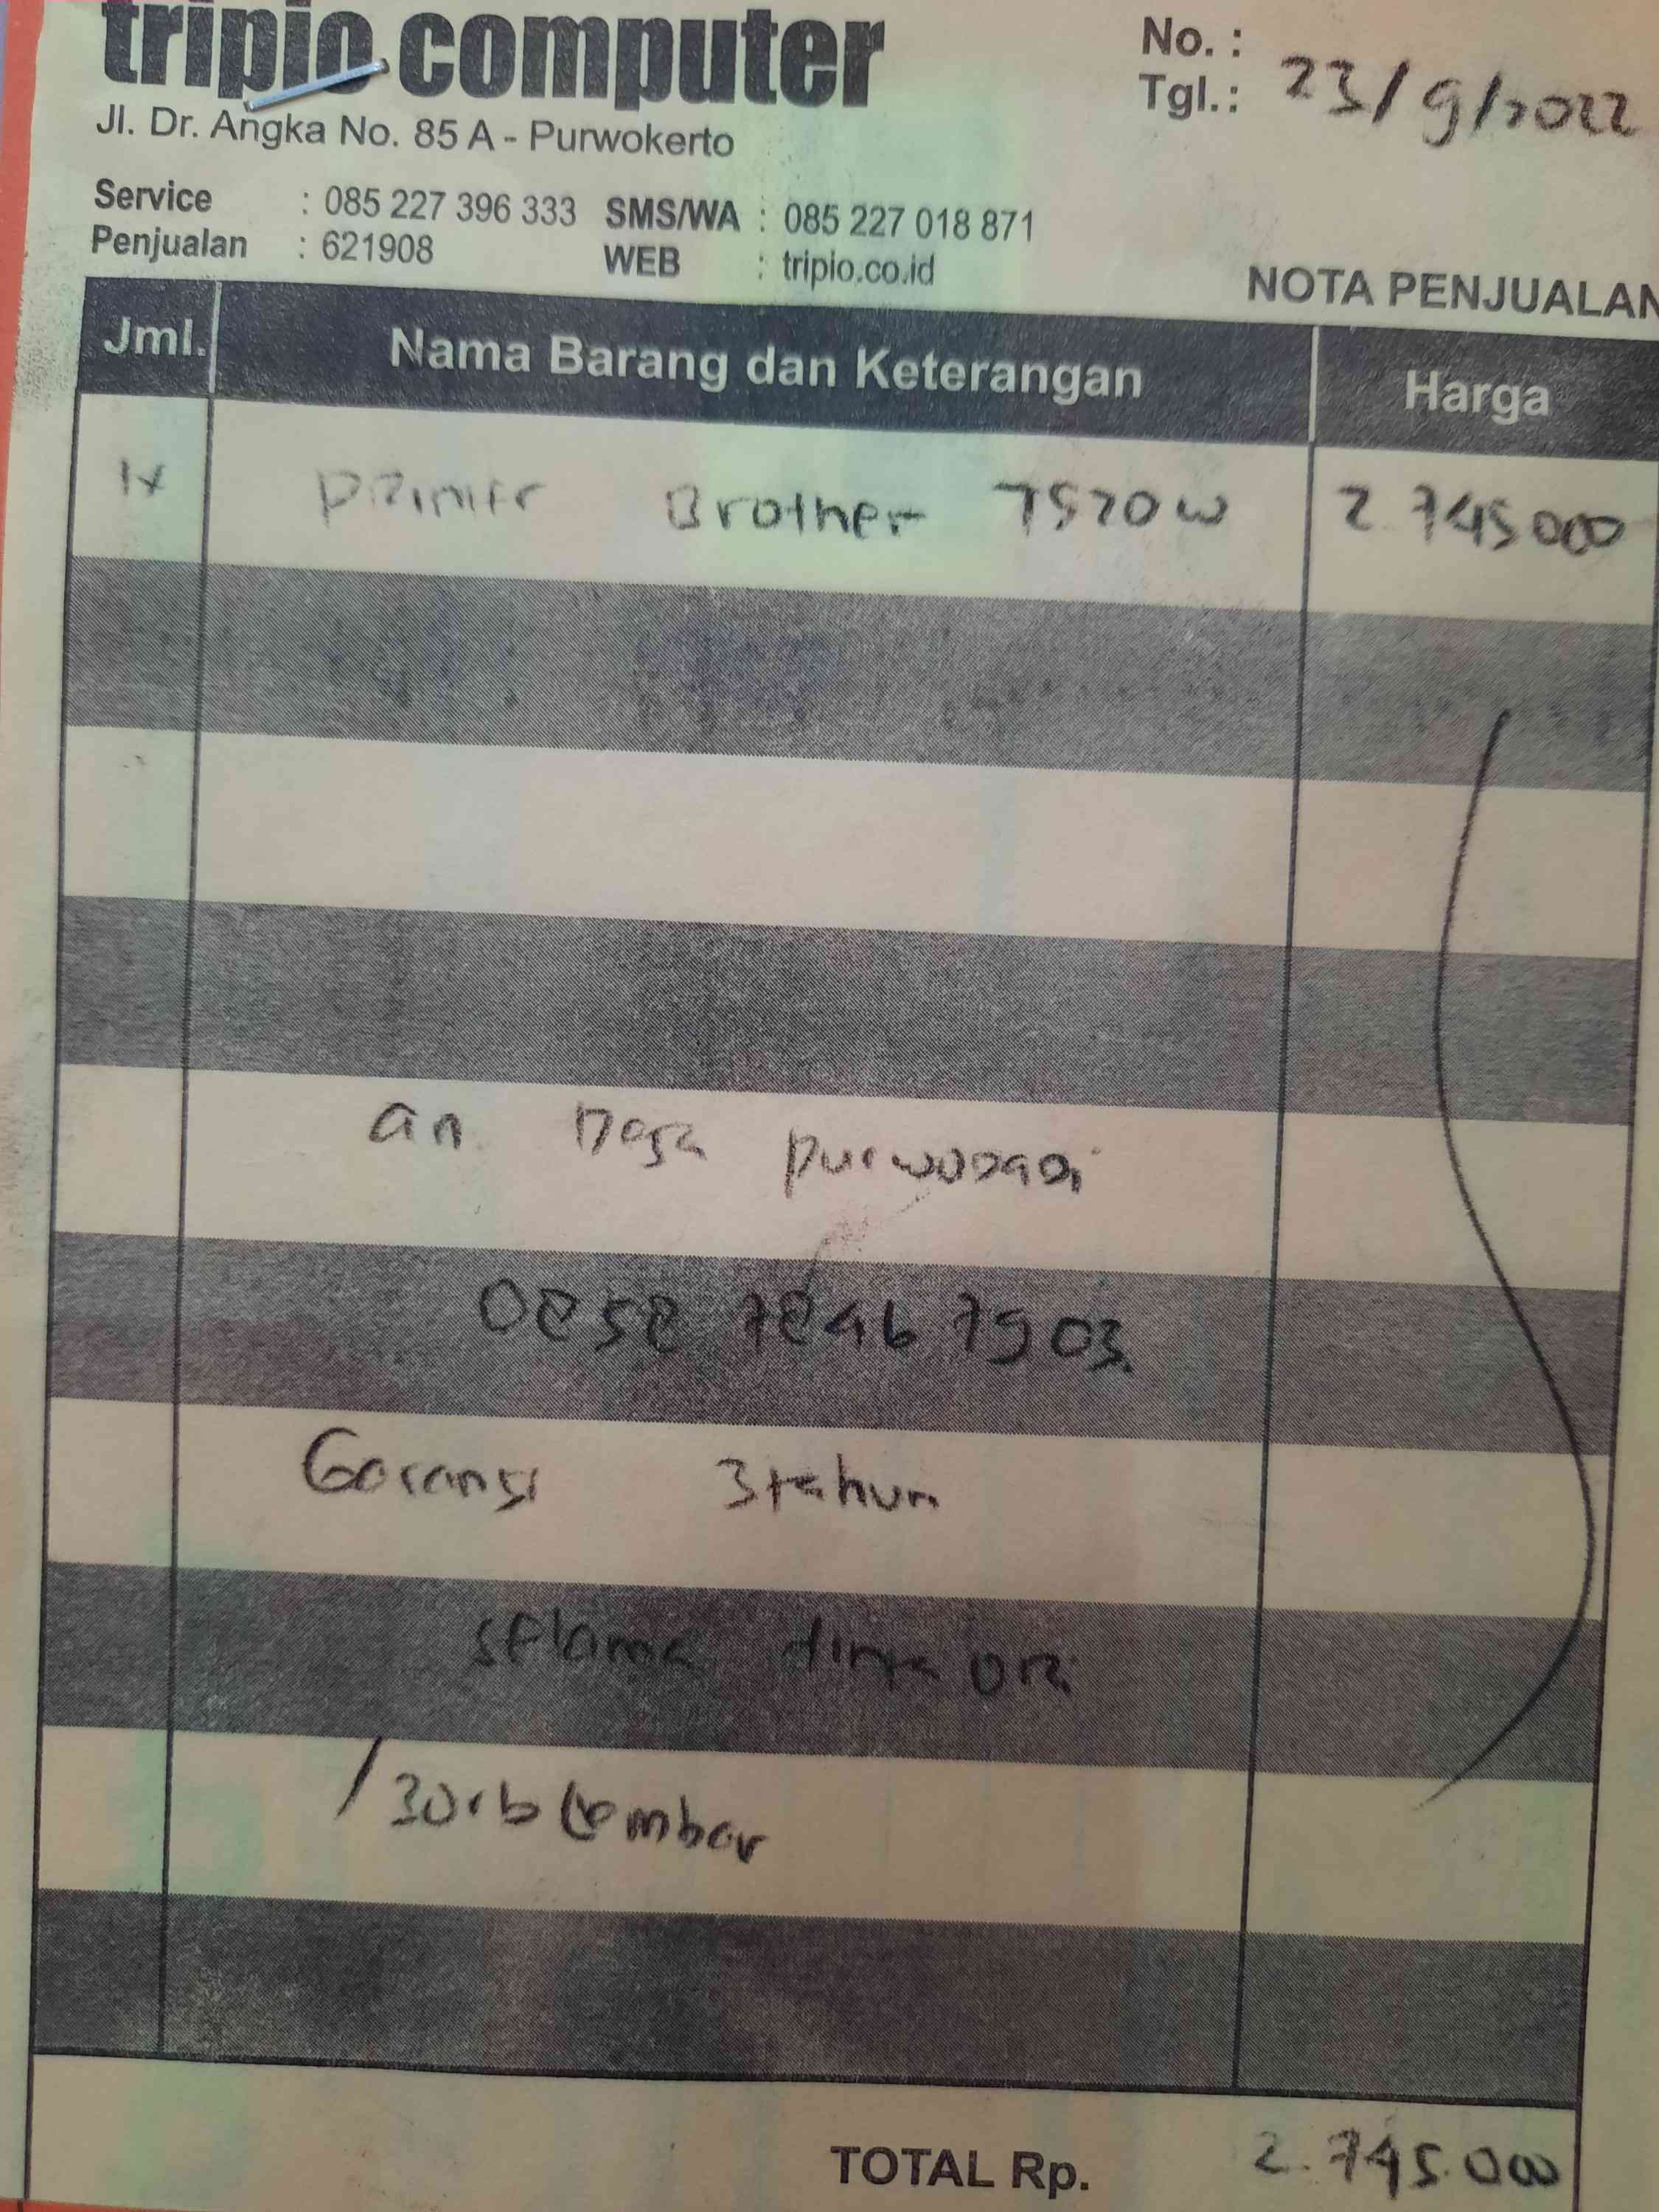 tripio computer
Jl. Dr. Angka No. 85 A - Purwokerto
No. :
Tgl. : 23/9/2022
Service : 085 227 396 333 SMS/WA : 085 227 018 871
Penjualan : 621908 WEB : tripio.co.id
NOTA PENJUALAN
Jml. Nama Barang dan Keterangan Harga
1x Printer Brother 7520w 2.745000
an Desa
0858 7846 7903
Garansi 3 tahun
selama
/30rb Lembar
TOTAL Rp. 2.745.000